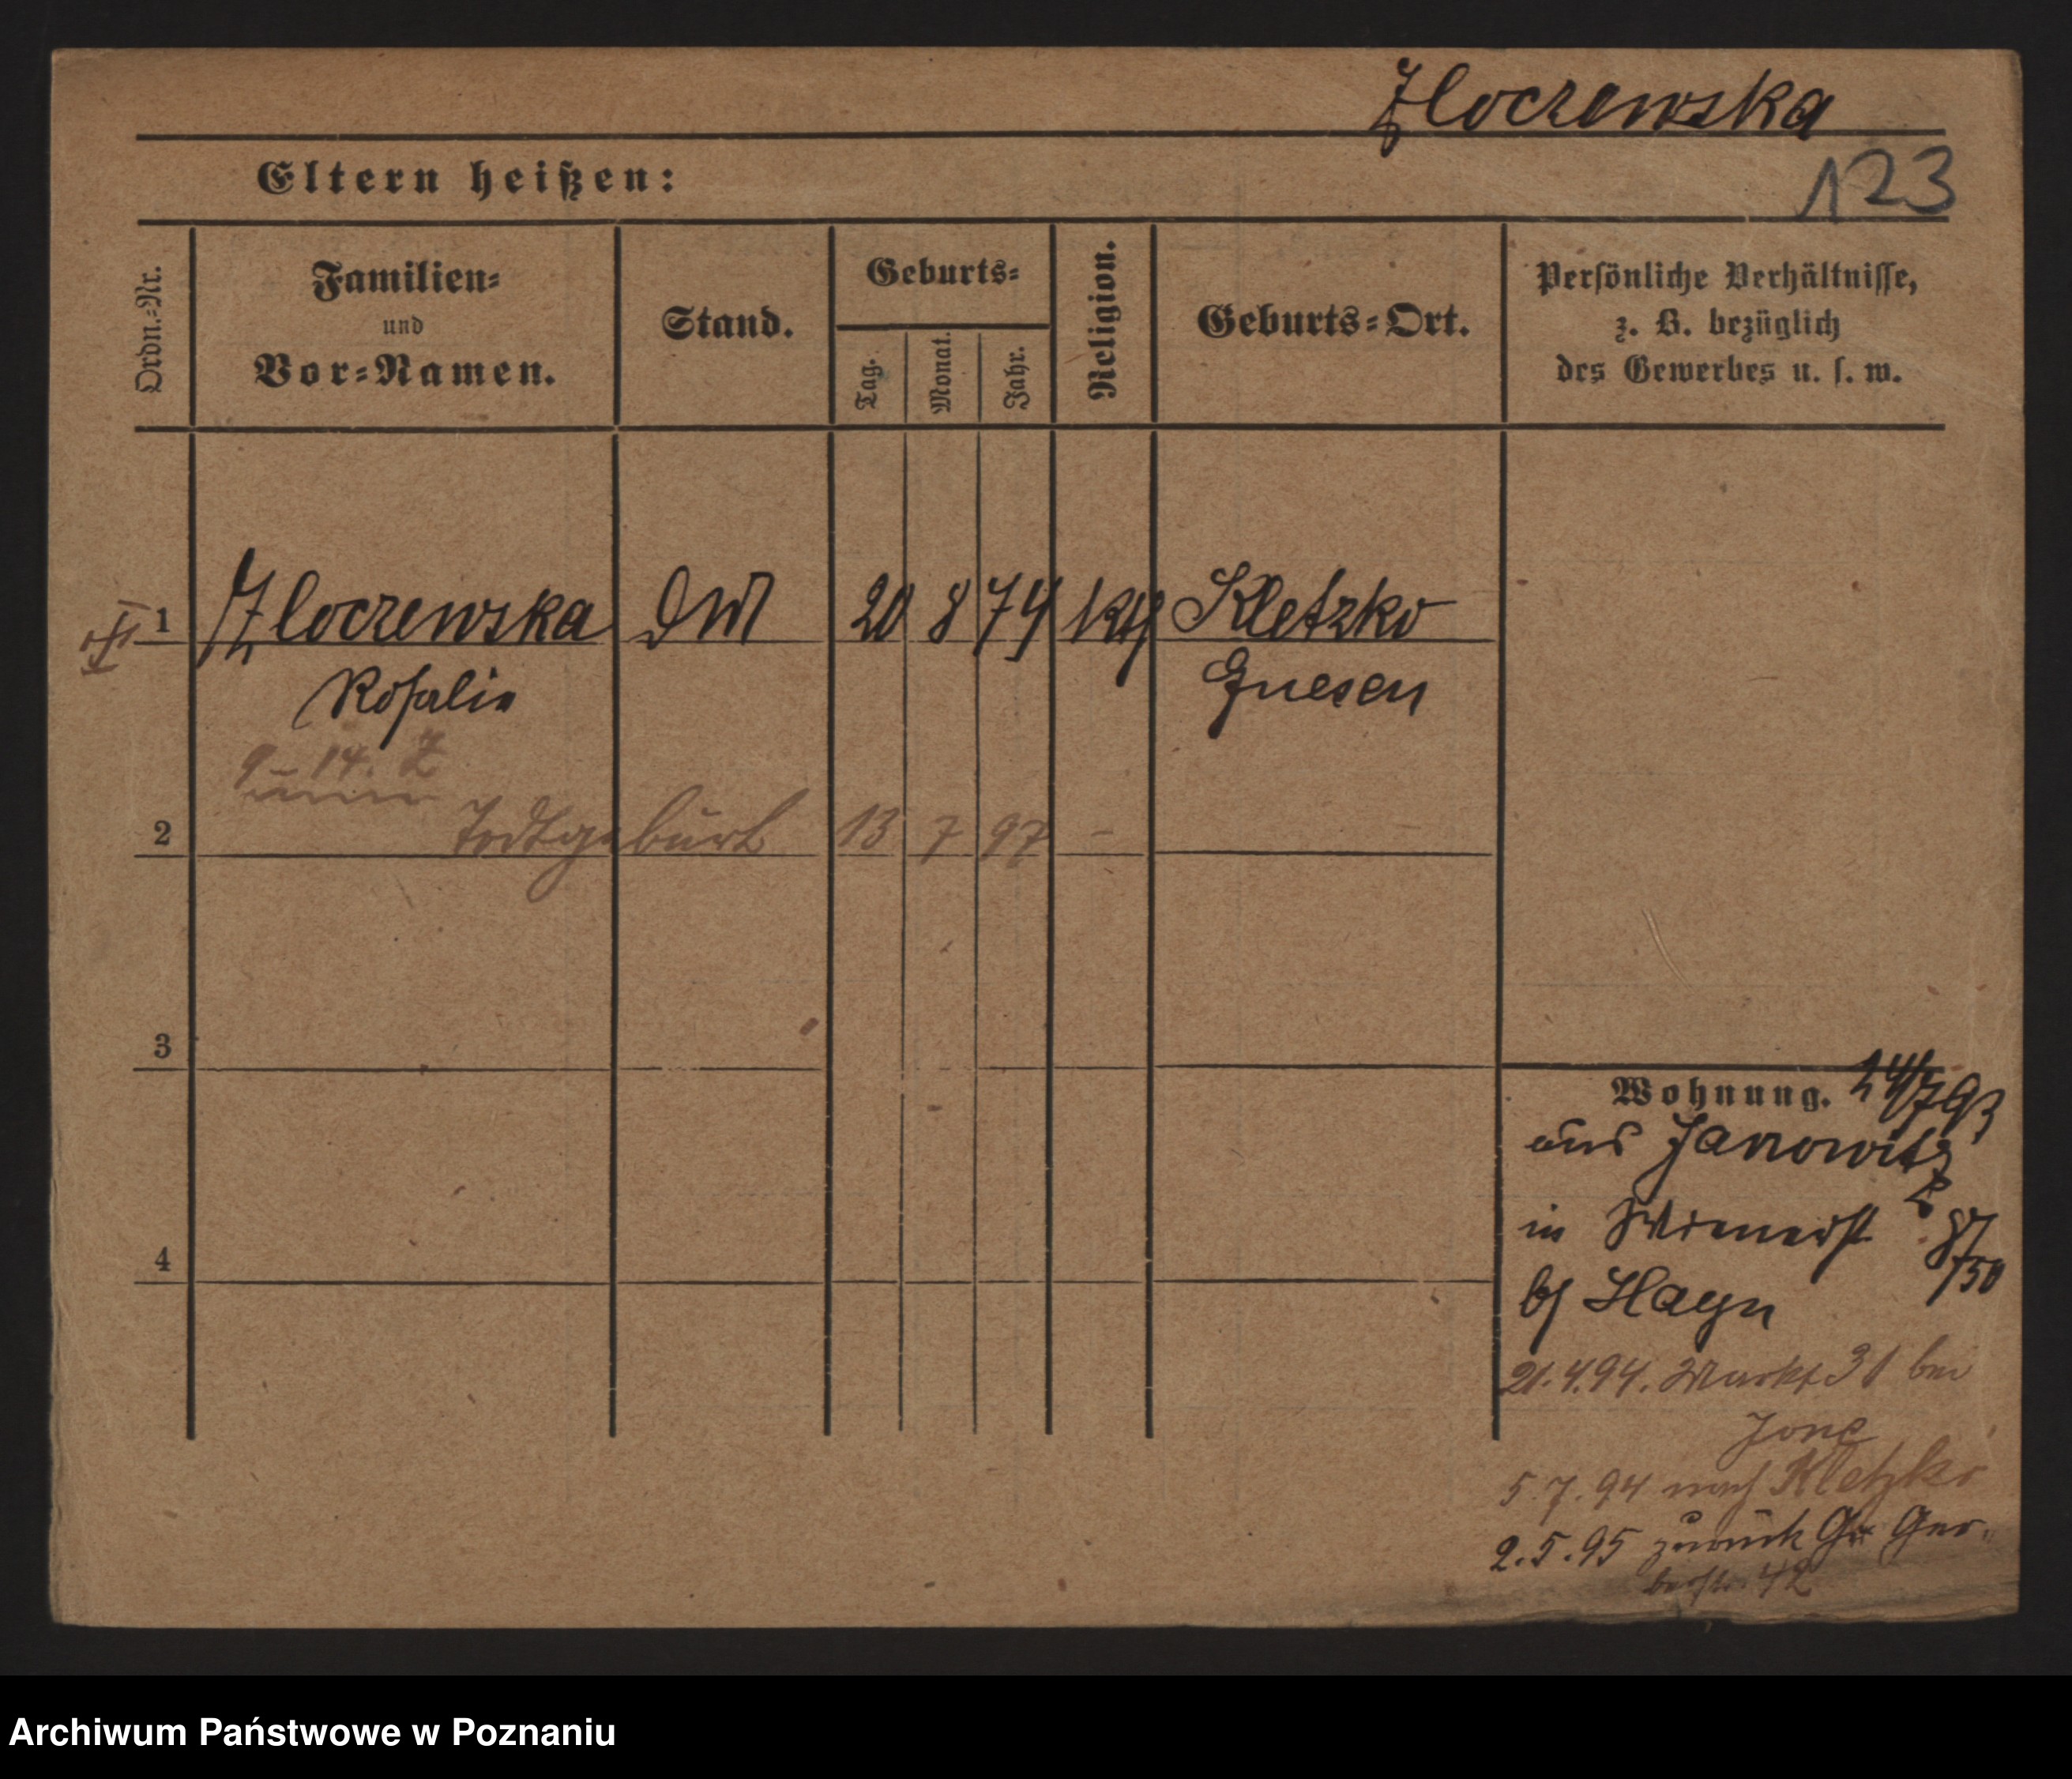 Zloczewska
123
Eltern heißen:
Ordn.-Nr.
Familien-
und
Vor-Namen.
Stand.
Geburts-
Tag.
Monat.
Jahr.
Religion.
Geburts-Ort.
Persönliche Verhältnisse,
z. B. bezüglich
des Gewerbes u. s. w.
1 Zloczewska DM 20 8 74 kth Kletzko
Rosalie Gnesen
9-14. Z
2 Todtgeburt 13 7 97 -
3
4
Wohnung. 24/7 93
aus Janowitz
in Wienerst
bj Hayn
21.4.94. Markt 31 bei
Jone
5.7.94 nach Kletzko
2.5.95 zurück Gr Ger-
berstr. 42
Archiwum Państwowe w Poznaniu